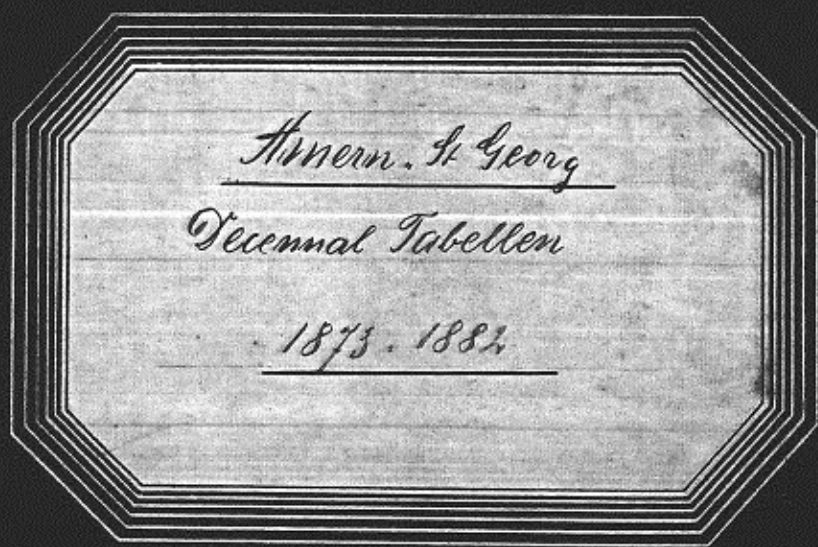 Amern. St Georg
Decennal Tabellen
1873. 1882